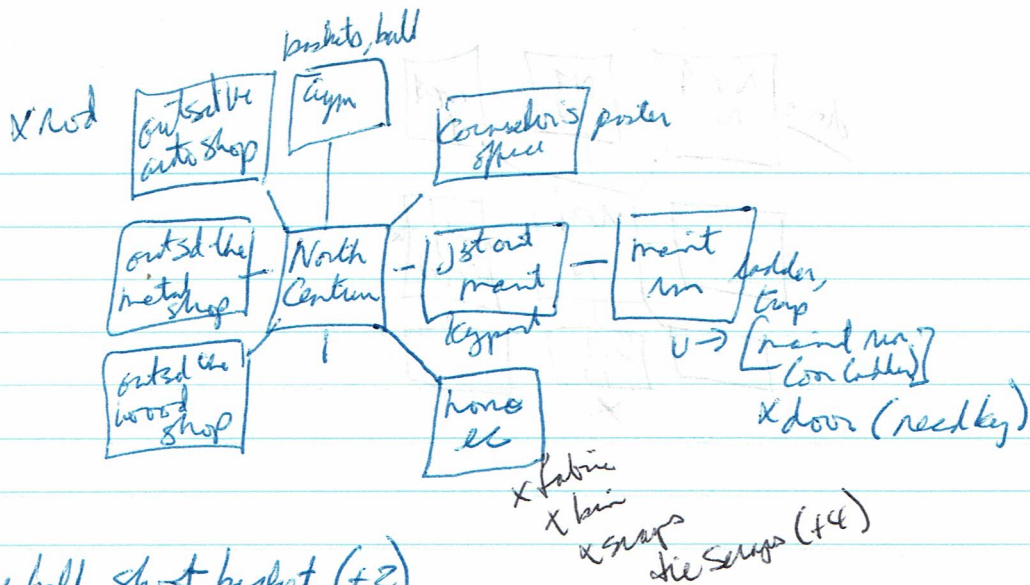 baskets, ball
x rod
outsd the
auto shop
Gym
Counselor's
office
poster
outsd the
metal
shop
North
Centrum
Jst out
maint
keyport
maint
rm
ladder,
trap
U → [maint rm.
(on ladder)]
x door (need key)
outsd the
wood
shop
home
ec
x fabric
x bin
x scraps
tie scraps (+4)
ball, shoot basket (+2)